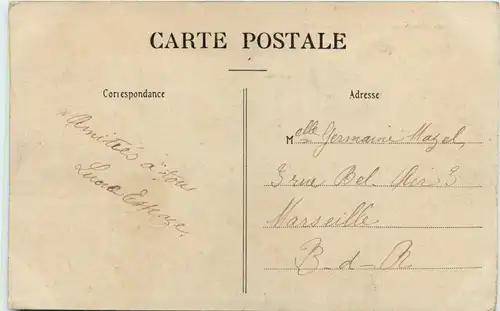 CARTE POSTALE
Correspondance
Adresse
Amitiés à tous
Melle Germaine Mazel
3 rue Bel-Air 3
Marseille
B-d-R